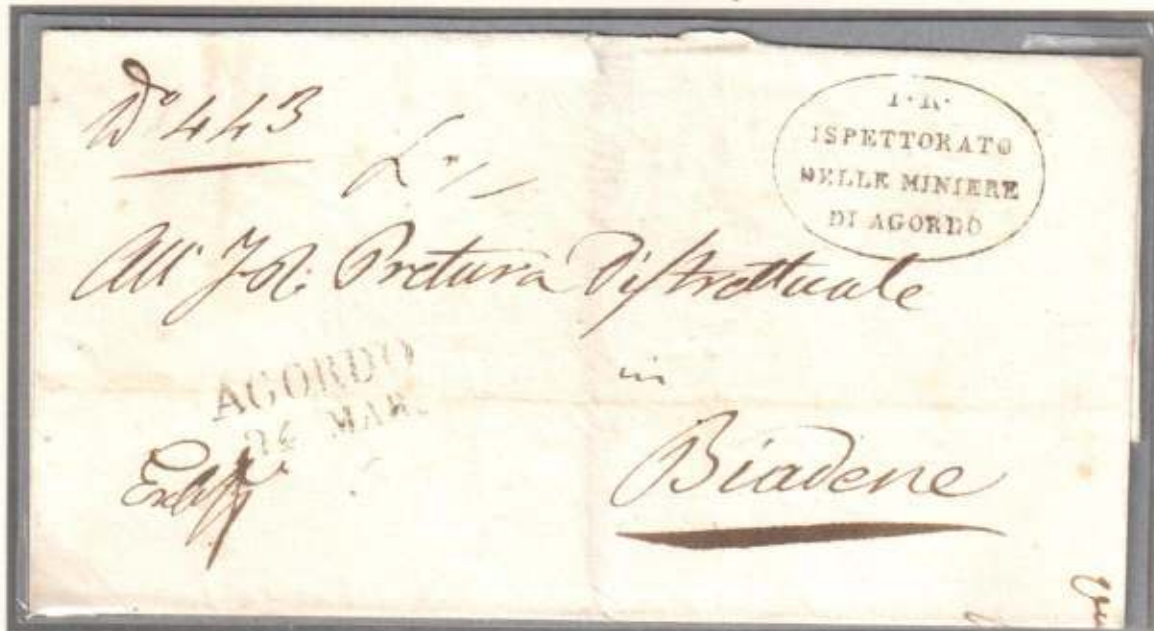 N° 443
I. R.
ISPETTORATO
DELLE MINIERE
DI AGORDO
All' I. R. Pretura Distrettuale
in
AGORDO
24 MAR.
Biadene